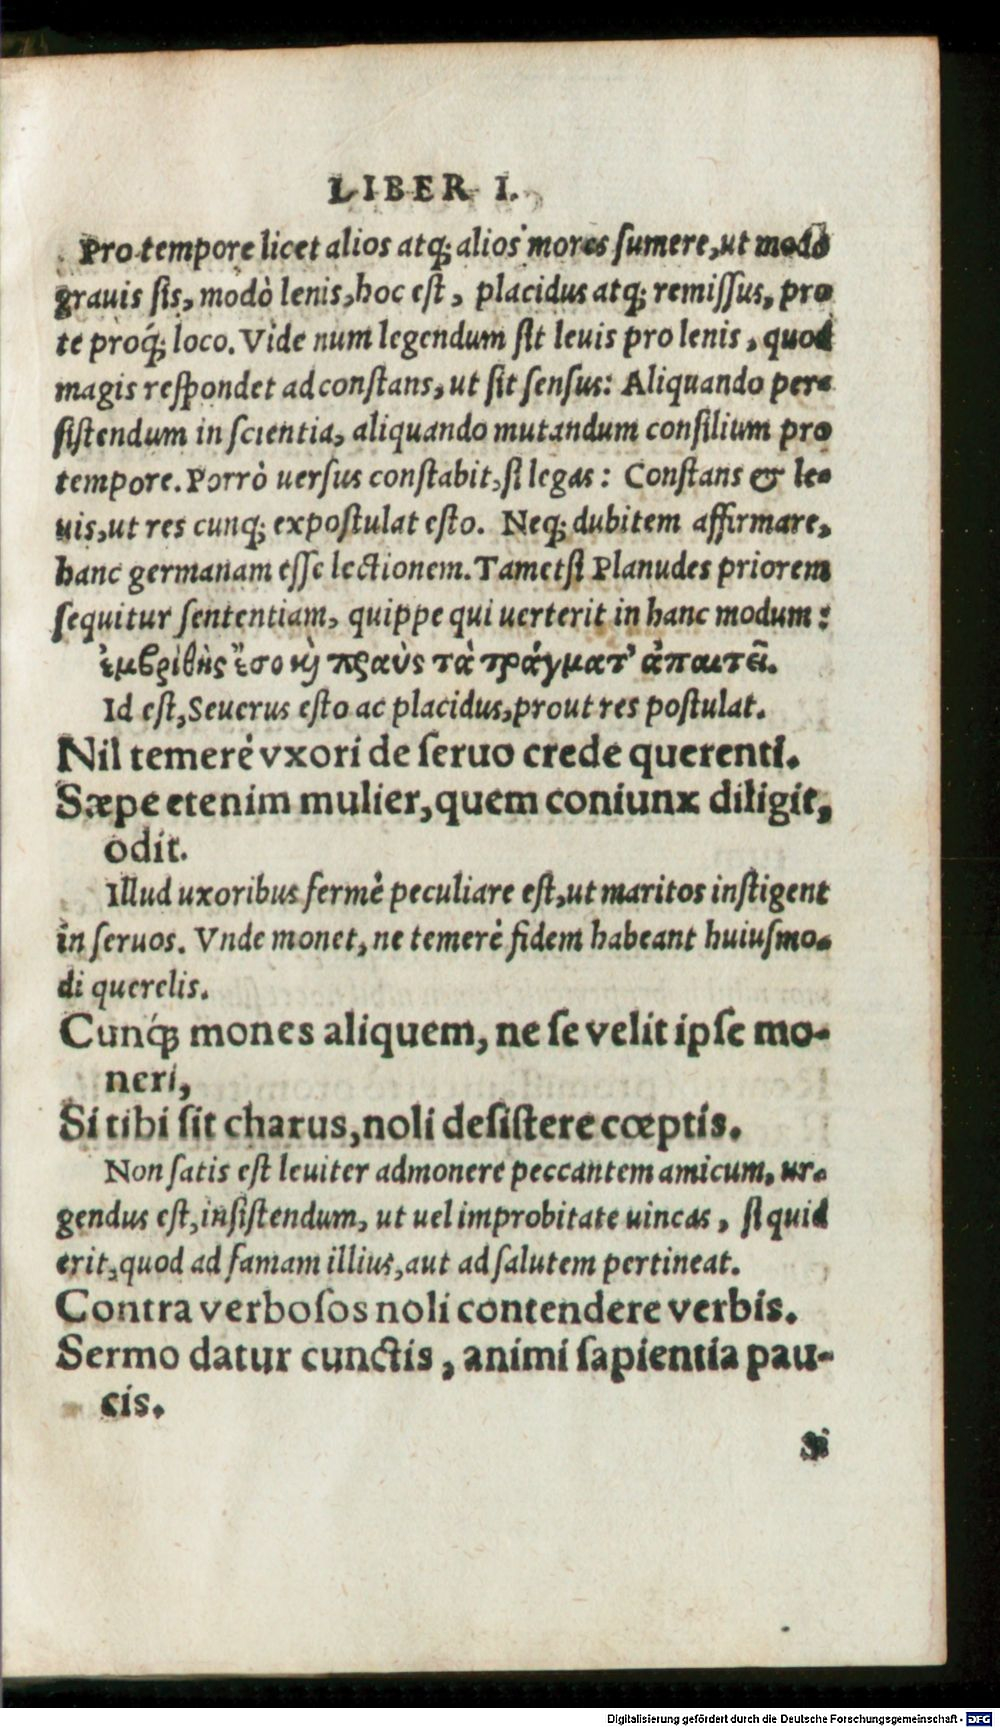 LIBER I.
Pro tempore licet alios atq; alios mores ſumere, ut modò
grauis ſis, modò lenis, hoc eſt, placidus atq; remiſſus, pro
te proq́; loco. Vide num legendum ſit leuis pro lenis, quod
magis reſpondet ad conſtans, ut ſit ſenſus: Aliquando per-
ſiſtendum in ſcientia, aliquando mutandum conſilium pro
tempore. Porrò uerſus conſtabit, ſi legas: Conſtans & le-
uis, ut res cunq; expoſtulat eſto. Neq; dubitem affirmare,
hanc germanam eſſe lectionem. Tametſi Planudes priorem
ſequitur ſententiam, quippe qui uerterit in hanc modum:
ἐμβριθὴς ἔσο καὶ πραὺς τὰ πράγματ' ἀπαιτεῖ.
Id eſt, Seuerus eſto ac placidus, prout res poſtulat.
Nil temerè vxori de ſeruo crede querenti.
Sæpe etenim mulier, quem coniunx diligit,
odit.
Illud uxoribus fermè peculiare eſt, ut maritos inſtigent
in ſeruos. Vnde monet, ne temerè fidem habeant huiuſmo-
di querelis.
Cunq́; mones aliquem, ne ſe velit ipſe mo-
neri,
Si tibi ſit charus, noli deſiſtere cœptis.
Non ſatis eſt leuiter admonere peccantem amicum, ur-
gendus eſt, inſiſtendum, ut uel improbitate uincas, ſi quid
erit, quod ad famam illius, aut ad ſalutem pertineat.
Contra verboſos noli contendere verbis.
Sermo datur cunctis, animi ſapientia pau-
cis.
Si
Digitalisierung gefördert durch die Deutsche Forschungsgemeinschaft - DFG